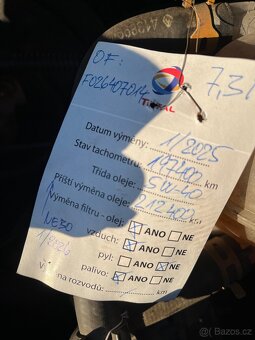 OF:
F026407014
7,3l
TOTAL
Datum výměny: 1/2025
Stav tachometru: 197400 km
Třída oleje: 5W-40
Příští výměna oleje: 212400 km
Výměna filtru - olej: ANO NE
NEBO
vzduch: ANO NE
1/2026
pyl: ANO NE
palivo: ANO NE
na rozvodů: km
sbazos.cz